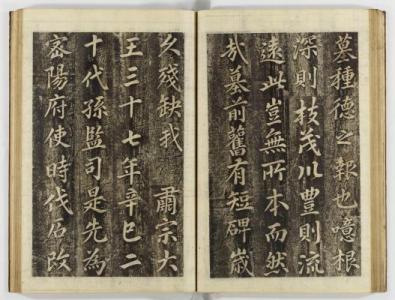 墓種德之報也噫根
深則枝茂川豊則流
遠此豈無所本而然
哉墓前舊有短碑歲
久殘缺我　肅宗大
王三十七年辛巳二
十代孫監司是先為
密陽府使時伐石改